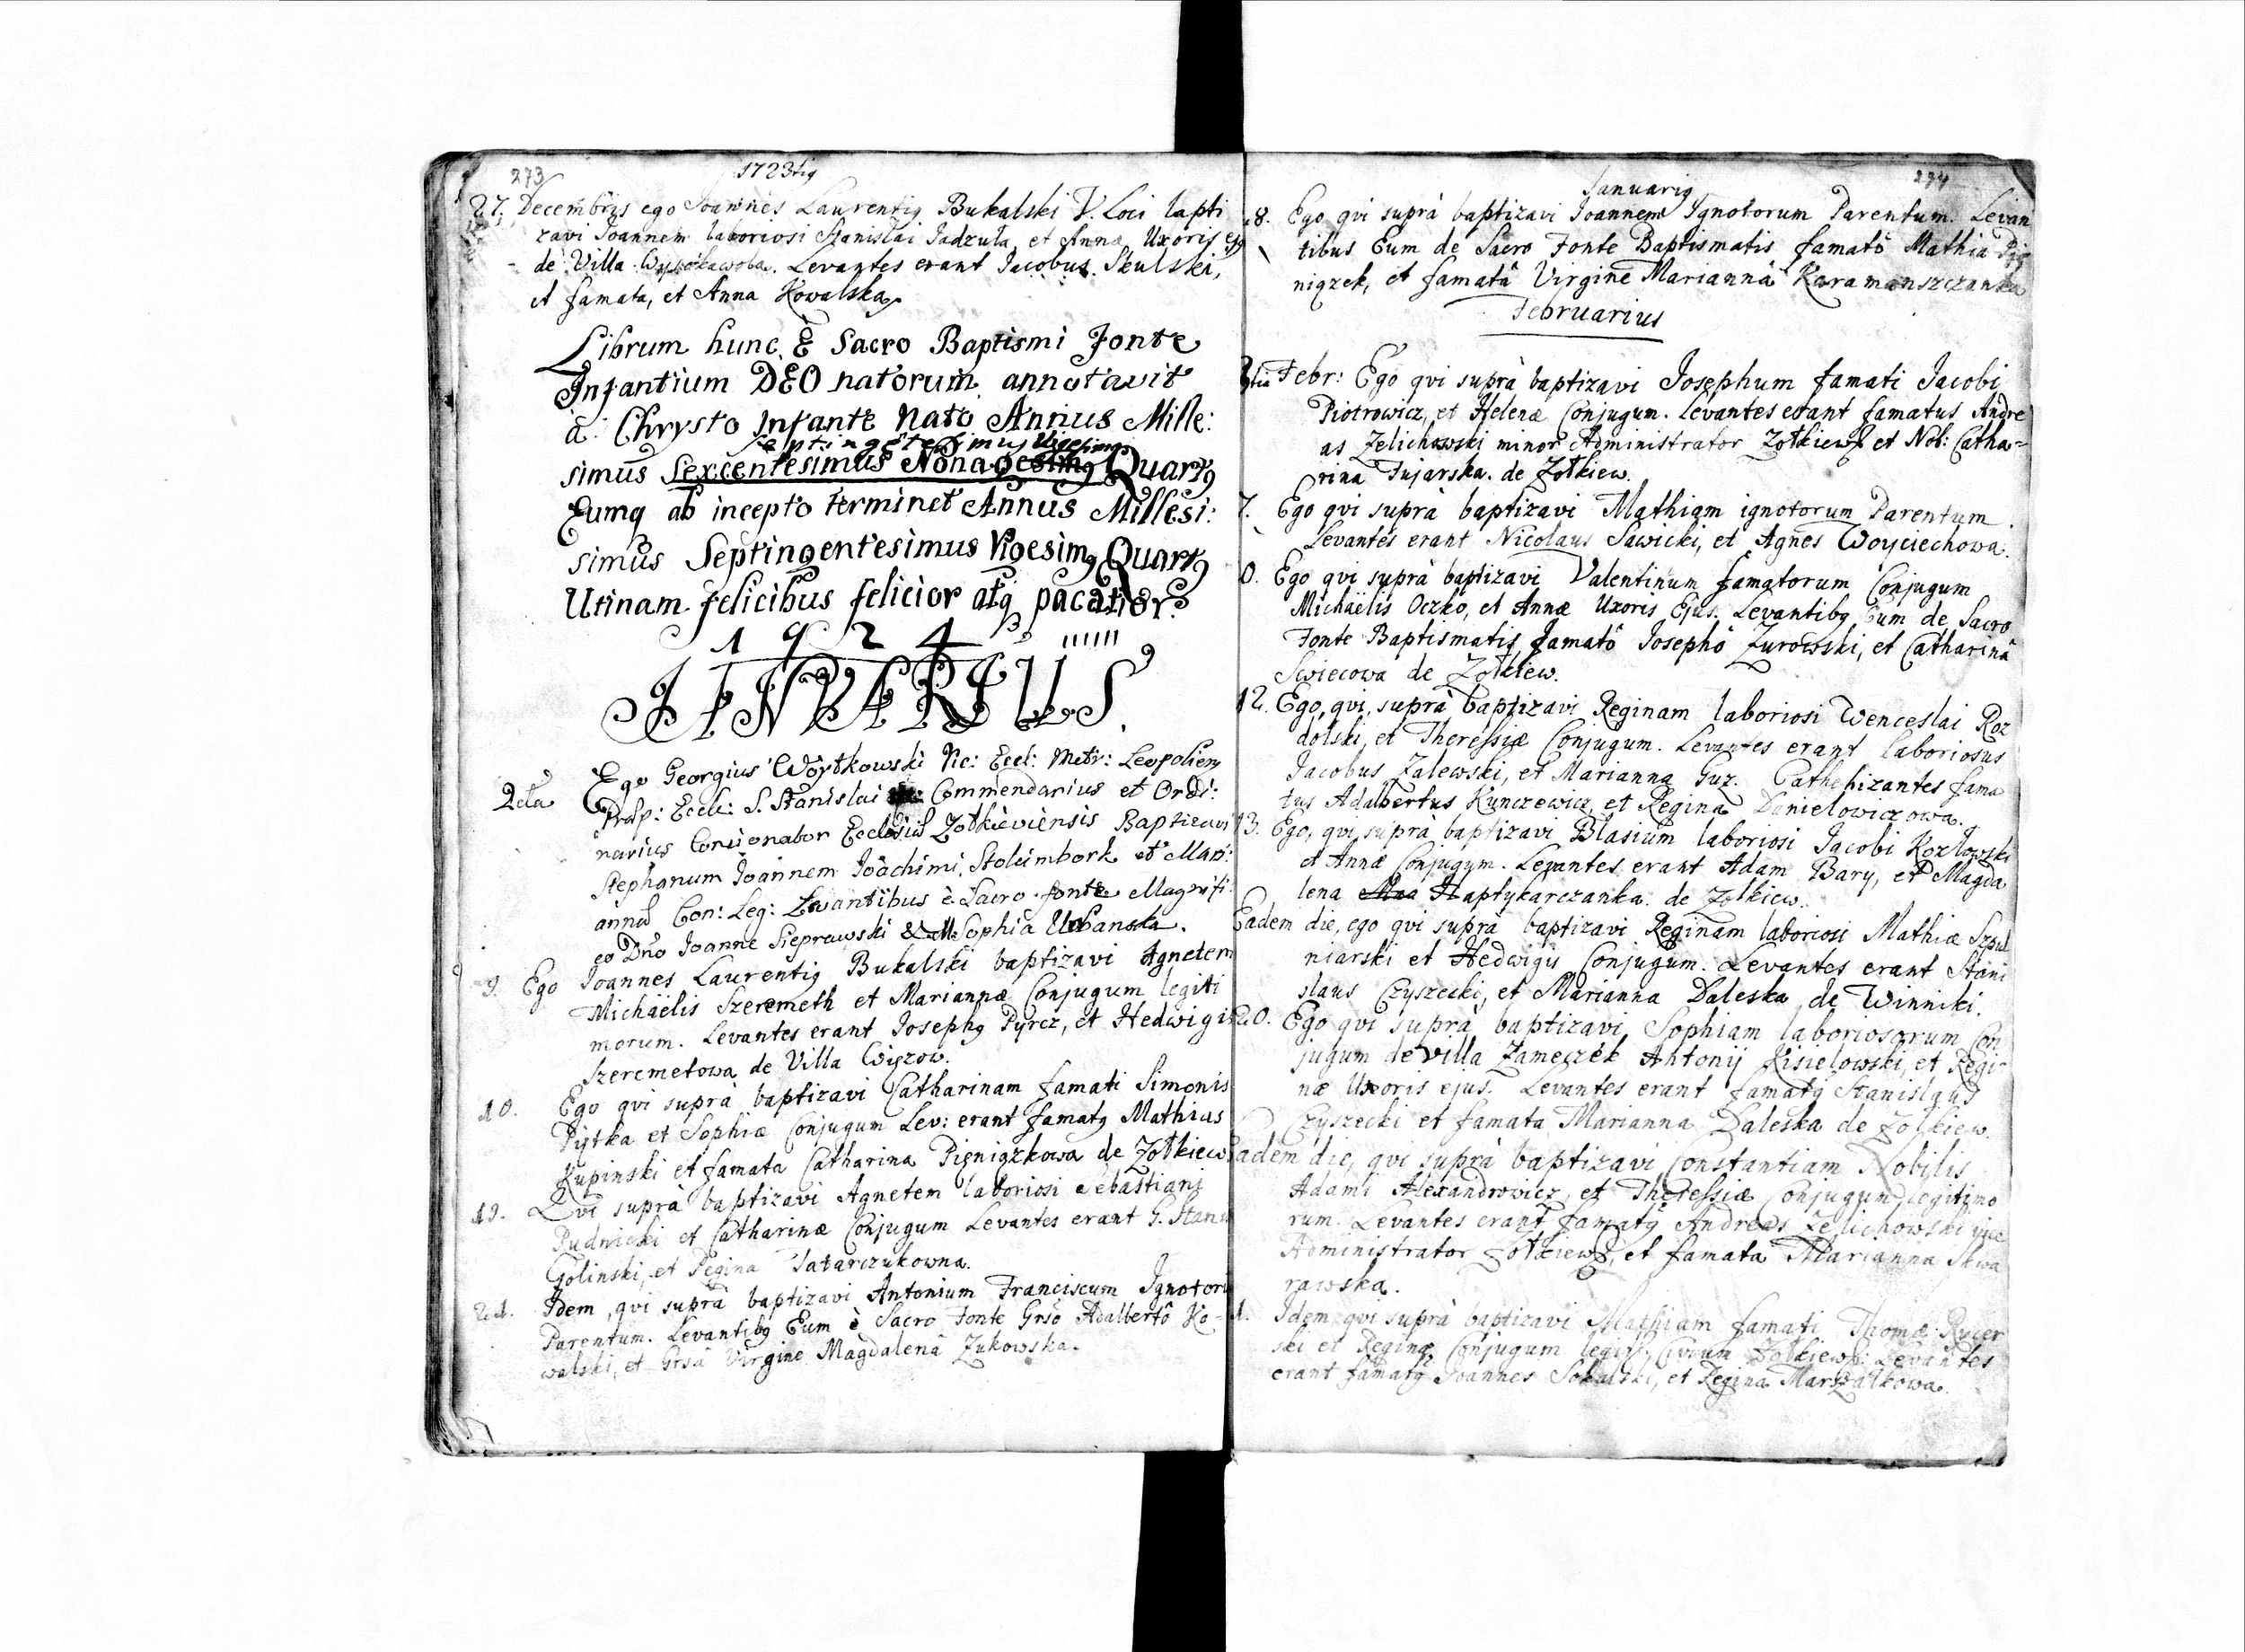 273
1723tiꝯ
27. Decembris ego Joannes Laurentiꝯ Bukalski V. Loci bapti
zavi Joannem laboriosi Stanislai Jadzuła, et Anna Uxoris ejꝯ
de Villa. Levantes erant Jacobus Skulski,
et famata, et Anna Kowalska
Librum hunc è Sacro Baptismi Fonte
Infantium DEO natorum annotavit
à Chrysto Infante Nato Annus Mille:
septingetesimus Vigesimꝯ
simus Sexcentesimus Nonagesimꝯ Quartꝯ
Eumq ab incepto terminet Annus Millesi:
simus Septingentesimus Vigesimꝯ Quartꝯ
Utinam felicibus felicior atq pacatior.
1724
JANUARIUS.
2da Ego Georgius Woytkowski Vic: Eccl: Metr: Leopolien
Præp: Eccle: S. Stanislai Commendarius et Ordi:
narius Concionator Ecclesiæ Zołkieviensis Baptizavi
Stephanum Joannem Joachimi Stolcimbork et Mari:
annæ Con: Leg: Levantibus è Sacro fonte Magnifi:
co Dno Joanne Sieprawski & M Sophia Urbanska.
9. Ego Joannes Laurentiꝯ Bukalski baptizavi Agnetem
Michäelis Szeremeth et Mariannæ Conjugum legiti
morum. Levantes erant Josephꝯ Pyrcz, et Hedwigis
Szeremetowa de Villa Wiązow.
10. Ego qvi suprà baptizavi Catharinam famati Simonis
Pytka et Sophiæ Conjugum Lev: erant famatꝯ Mathias
Kupinski et famata Catharina Pieniązkowa de Zołkiew
19. Qvi suprà baptizavi Agnetem laboriosi Sebastiani
Rudnicki et Catharinæ Conjugum Levantes erant G. Stanis
Golinski, et Regina Tatarczukowna.
21. Idem, qvi suprà baptizavi Antonium Franciscum Ignotoru
Parentum. Levantibꝯ Eum è Sacro Fonte Grsō Adalbertô Ko-
walski, et Grsâ Virgine Magdalenâ Zukowska.
Januariꝯ
274
8. Ego qvi suprà baptizavi Joannem Ignotorum Parentum. Levan
tibus Eum de Sacro Fonte Baptismatis famatô Mathia Pie
niązek, et famatâ Virgine Mariannâ Karamanszczanka
Februarius
Febr: Ego qvi suprà baptizavi Josephum famati Jacobi
Piotrowicz, et Helenæ Conjugum. Levantes erant famatus Andre
as Zelichowski minor Administrator Zołkiews et Nob: Catha=
rina Fujarska de Zołkiew.
7. Ego qvi suprà baptizavi Mathiam ignotorum Parentum
Levantes erant Nicolaus Sawicki, et Agnes Woyciechowa.
0. Ego qvi suprà baptizavi Valentinum famatorum Conjugum
Michäelis Oczko, et Annæ Uxoris Ejus. Levantibꝯ Eum de Sacro
Fonte Baptismatis, famatô Josephô Zurowski, et Catharinâ
Swiecowa de Zołkiew.
12. Ego, qvi suprà baptizavi Reginam laboriosi Wenceslai Roz
dolski, et Theressiæ Conjugum. Levantes erant laboriosus
Jacobus Zalewski, et Marianna Guz. Cathehizantes fama
tus Adalbertus Kunczewicz, et Regina Danielowiczowa.
13. Ego, qvi suprà baptizavi Blasium laboriosi Jacobi Kozłowski
et Annæ Conjugum. Levantes erant Adam Bary, et Magda
lena Maa Haptykarczanka de Zolkiew.
Eadem die, ego qvi suprà baptizavi Reginam laboriosi Mathiæ Szpul
niarski et Hedwigis Conjugum. Levantes erant Stani
slaus Czyszecki, et Marianna Daleska de Winniki.
20. Ego qvi suprà baptizavi Sophiam laboriosorum Con
jugum de Villa Zameczek Antonij Kisielowski, et Regi-
næ Uxoris ejus. Levantes erant famatꝯ Stanislaus
Czyszecki et famata Marianna Daleska de Zołkiew.
Eadem die, qvi suprà baptizavi Constantiam Nobilis
Adami Alexandrowicz, et Theressiæ Conjugum legitimo
rum. Levantes erant famatꝯ Andreas Zelichowski vice
Administrator Zołkiews, et famata Marianna Skwa
rawska.
1. Idem qvi suprà baptizavi Mathiam famati Thomæ Rycer
ski et Reginæ Conjugum legit: Civium Zołkiews: Levantes
erant famatꝯ Joannes Sokalski, et Regina Marszałkowa.